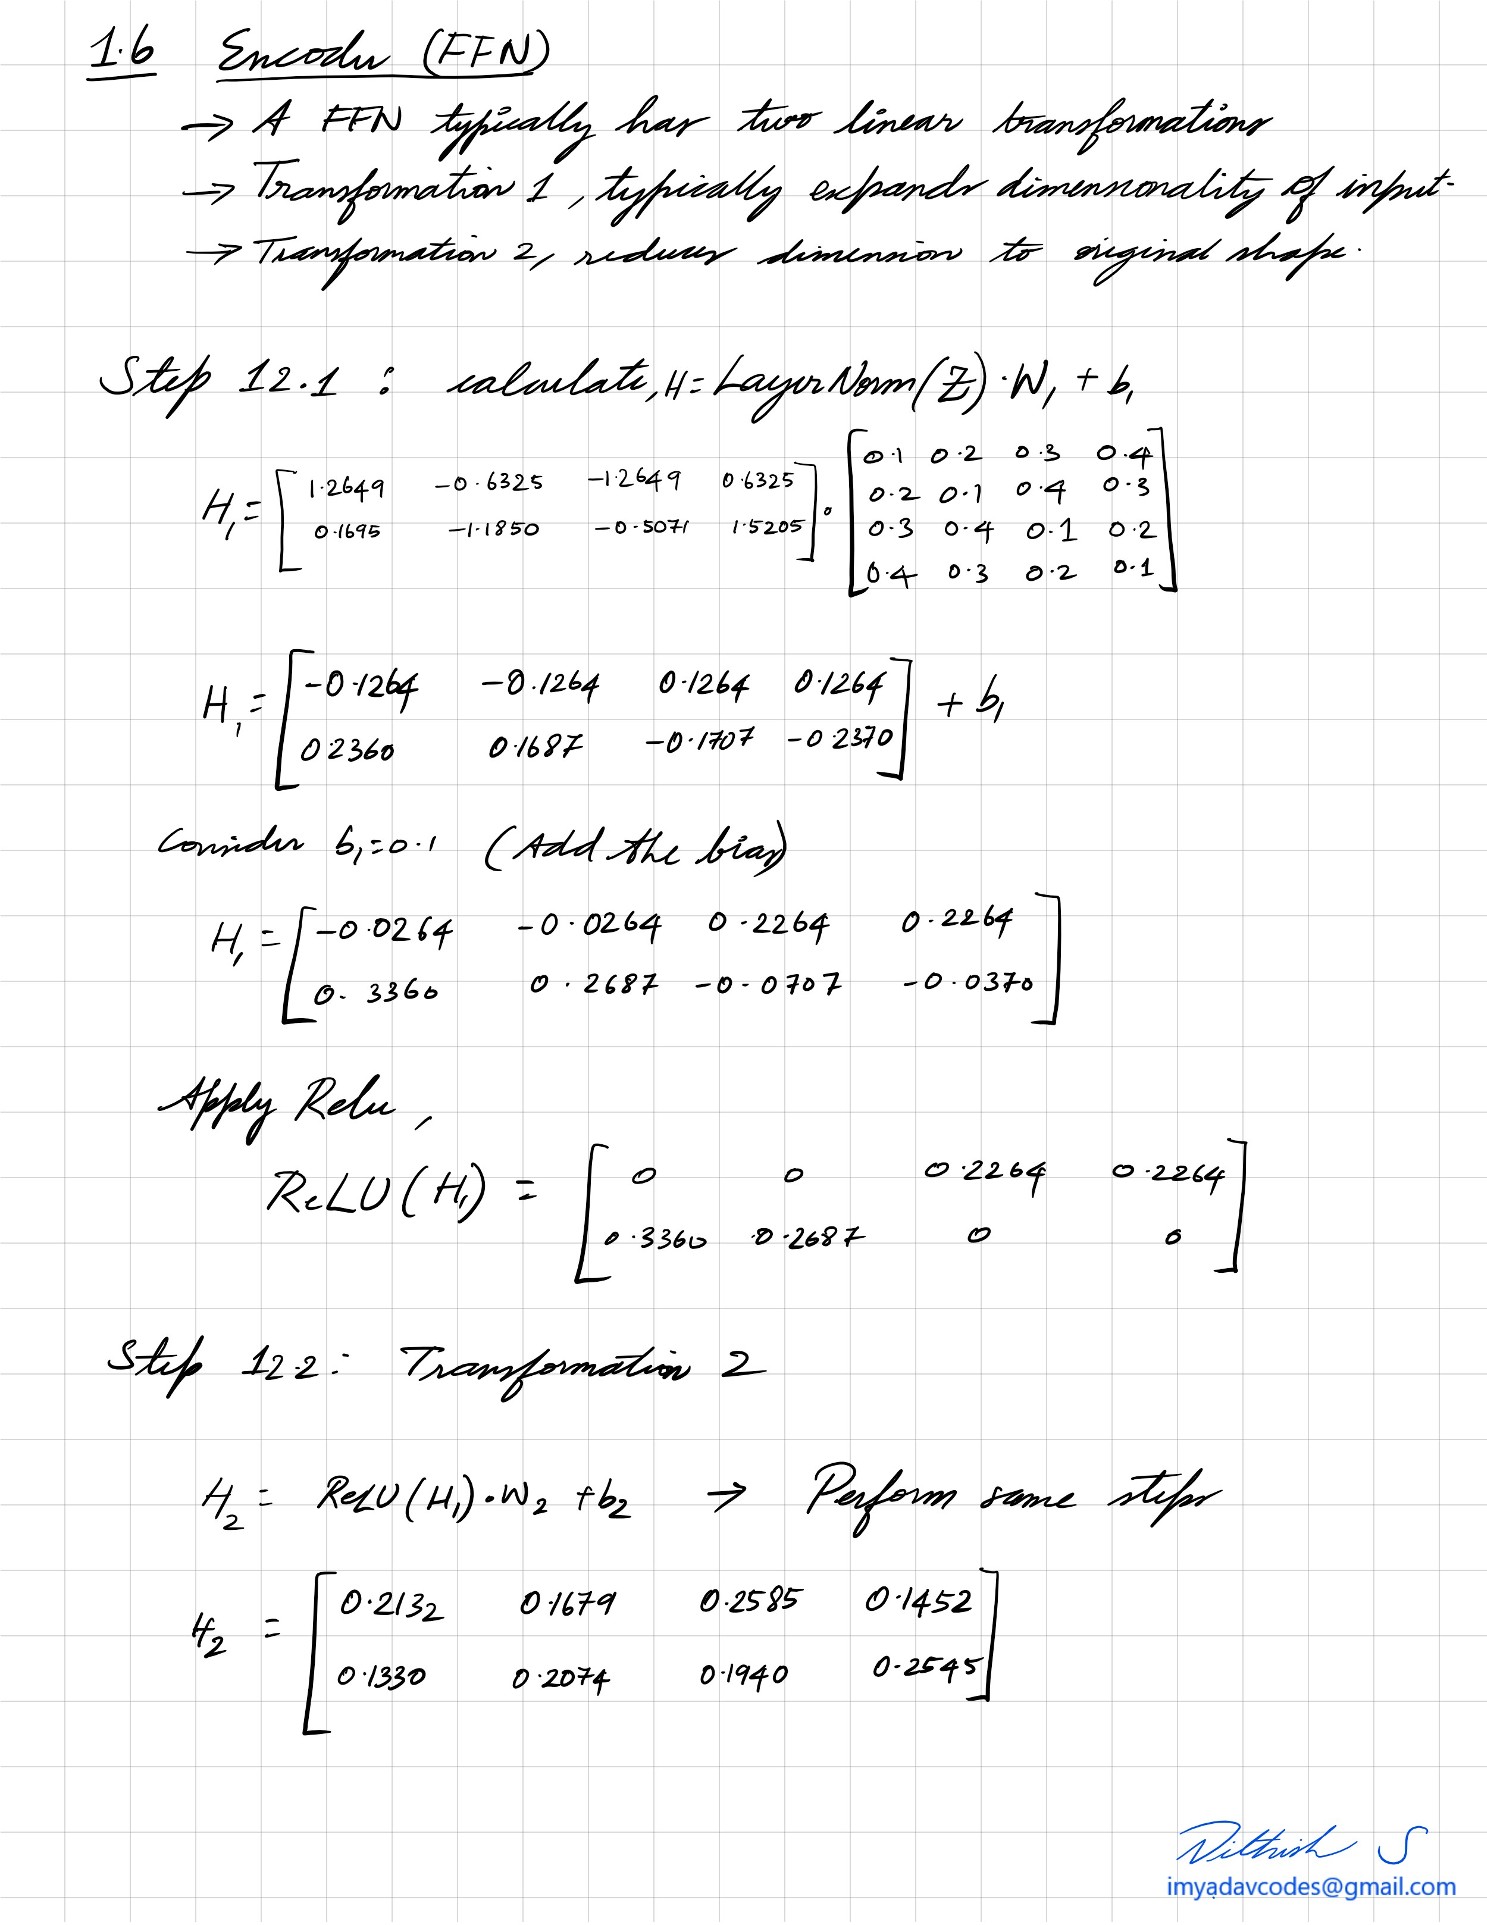 1.6 Encoder (FFN)
→ A FFN typically has two linear transformations
→ Transformation 1, typically expands dimensionality of input.
→ Transformation 2, reduces dimension to original shape.
Step 12.1 : calculate, H = LayerNorm(Z) · W₁ + b₁
H₁ = [ 1.2649 -0.6325 -1.2649 0.6325
0.1695 -1.1850 -0.5071 1.5205 ] · [ 0.1 0.2 0.3 0.4
0.2 0.1 0.4 0.3
0.3 0.4 0.1 0.2
0.4 0.3 0.2 0.1 ]
H₁ = [ -0.1264 -0.1264 0.1264 0.1264
0.2360 0.1687 -0.1707 -0.2370 ] + b₁
Consider b₁=0.1 (Add the bias)
H₁ = [ -0.0264 -0.0264 0.2264 0.2264
0.3360 0.2687 -0.0707 -0.0370 ]
Apply Relu,
ReLU(H₁) = [ 0 0 0.2264 0.2264
0.3360 0.2687 0 0 ]
Step 12.2: Transformation 2
H₂ = ReLU(H₁)·W₂ + b₂ → Perform same steps
H₂ = [ 0.2132 0.1679 0.2585 0.1452
0.1330 0.2074 0.1940 0.2545 ]
Nithish S
imyadavcodes@gmail.com